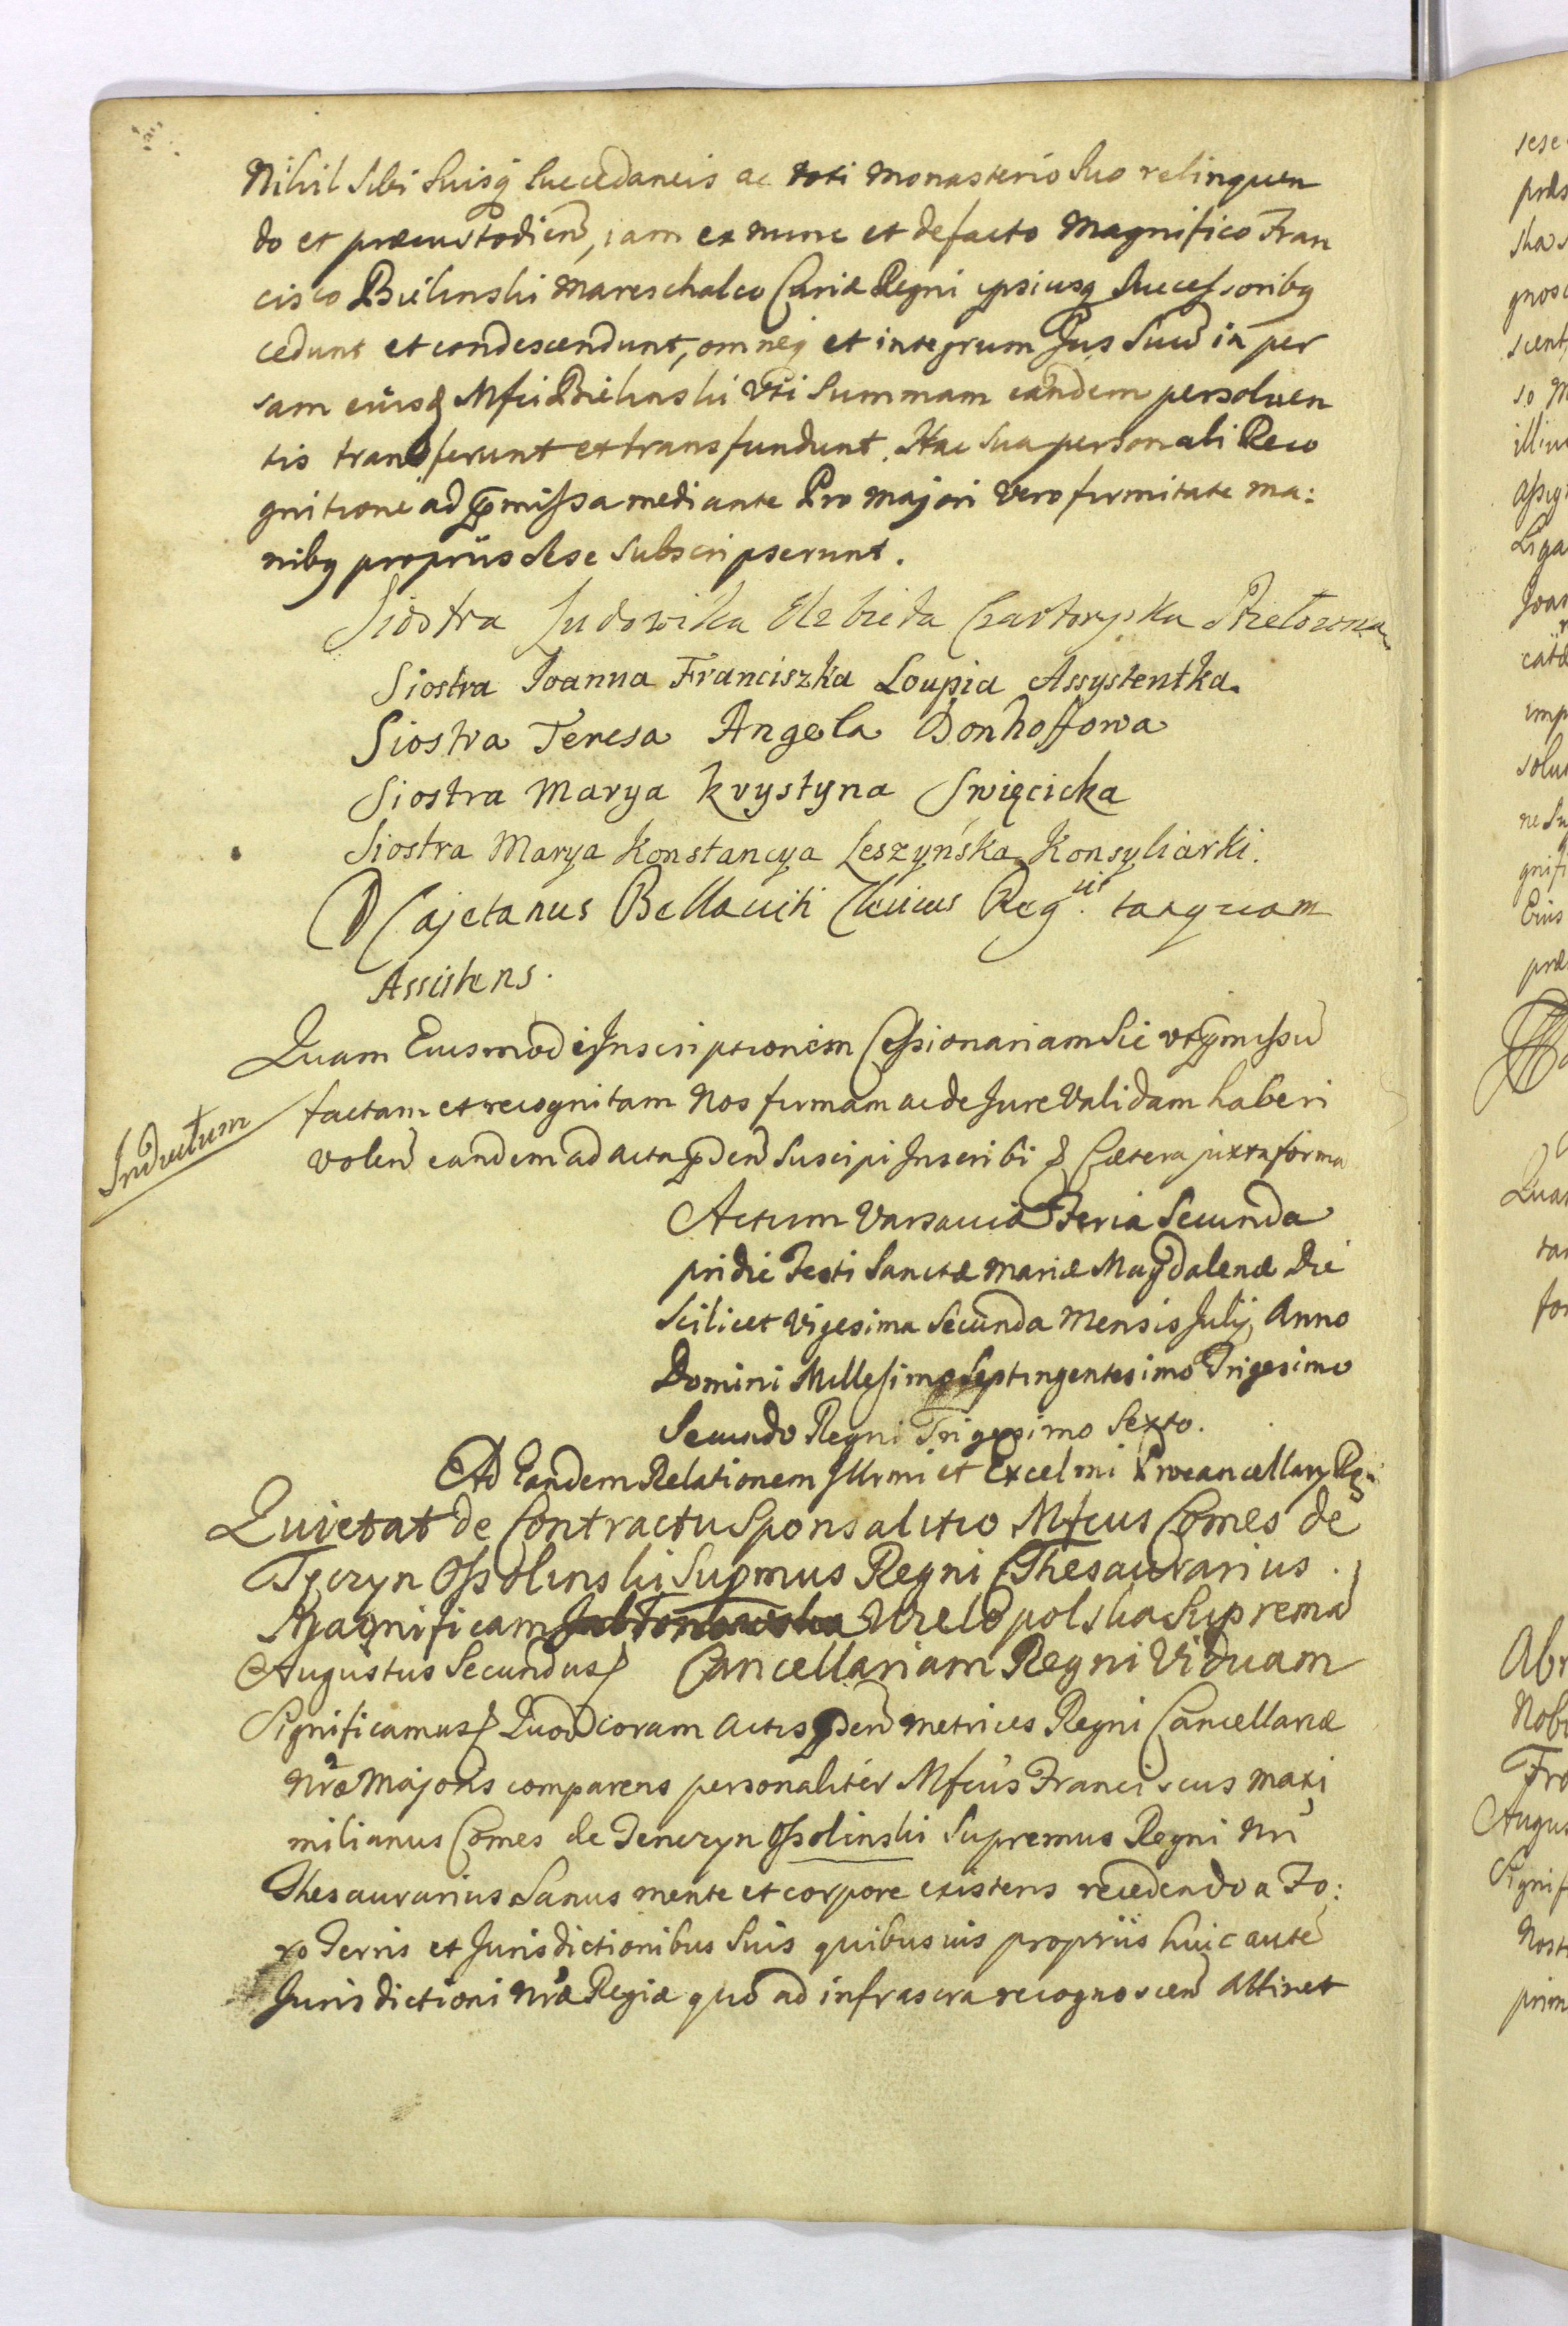 Nihil Sibi Suisq Succedaneis ac toti Monasterio Suo relinquen
do et præcustodien, iam ex nunc et de facto Magnifico Fran
cisco Bielinski Mareschalco Curiæ Regni ipsiusq Successoribq
cedunt et condescendunt, omneq et integrum Jus Suu in per
sam eiusd Mfci Bielinski Uti Summam eandem persoluen
tis transferunt et transfundunt. Hac Sua personali Reco
gnitione ad pmissa mediante Pro Majori Vero firmitate ma:
nibq propriis Sese Subscripserunt.
Siostra Ludowika Elzbieta Czartoryska Przełozona
Siostra Joanna Franciszka Loupia Assystentka.
Siostra Teresa Angela Donhoffowa
Siostra Marya Krystyna Swięcicka
Siostra Marya Konstancya Leszzyńska Konsyliarki.
D Cajetanus Bellaviti Clericus Reg.ris tanquam
Assistens.
Quam Eiusmodi Inscriptionem Cessionariam Sic ut pmissu
factam et recognitam Nos firmam ac de Jure Validam haberi
Indultum
volen eandem ad acta pden Suscipi Inscribi & Cætera juxta forma
Actum Varsaviæ Feria Secunda
pridie Festi Sanctæ Mariæ Magdalenæ Die
Scilicet Vigesima Secunda Mensis Julij Anno
Domini Millesimo Septingentesimo Trigesimo
Secundo Regni Trigesimo Sexto.
Ad Eandem Relationem Illrmi et Excelmi Procancellary Rg
Quietat de Contractu Sponsalitio Mfcus Comes de
Tęczyn Ossolinski Supmus Regni Thesaurarius.
Magnificam Jabłonowska Wielopolska Suprema
Augustus Secundus & Cancellariam Regni Viduam
Significamus & Quod coram Actis pden Metrices Regni Cancellariæ
Nræ Majoris comparens personaliter Mfcus Franciscus Maxi
milianus Comes de Tenczyn Ossolinski Supremus Regni Nri
Thesaurarius Sanus mente et corpore existens recedendo a Fo:
ro Terris et Jurisdictionibus Suis quibusuis propriis huic aute
Jurisdictioni Nræ Regiæ quo ad infrascra recognoscen Attinet